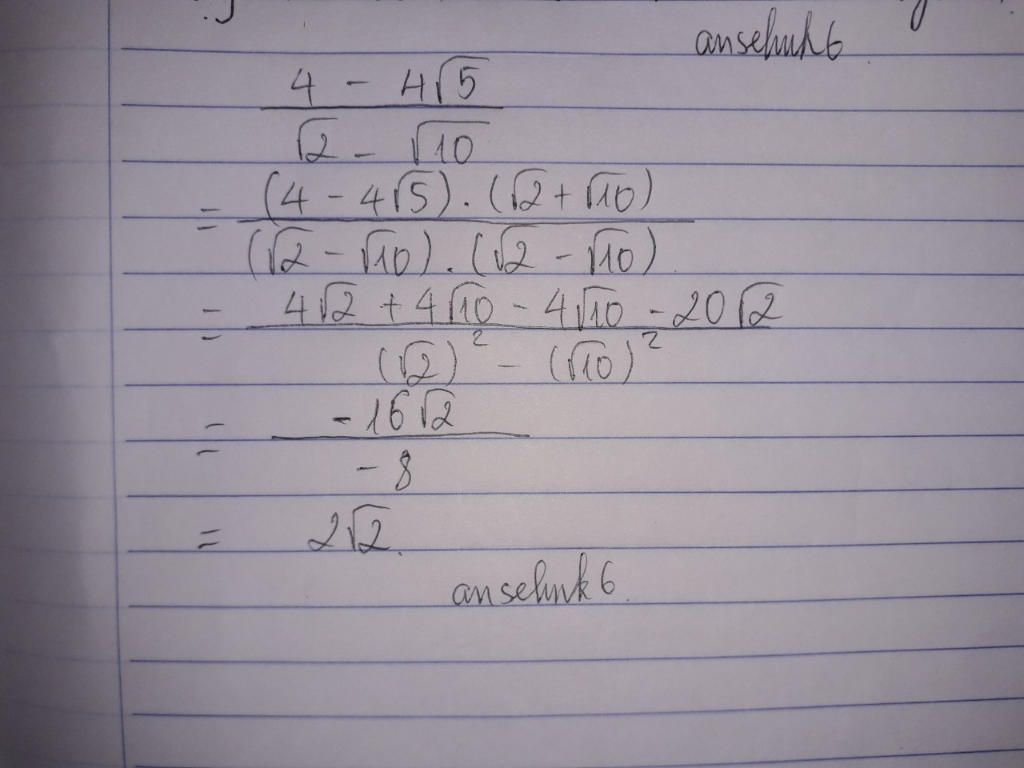 anselmk6
4 - 4√5
√2 - √10
= (4 - 4√5) . (√2 + √10)
(√2 - √10) . (√2 - √10)
= 4√2 + 4√10 - 4√10 - 20√2
(√2)² - (√10)²
= -16√2
-8
= 2√2.
anselmk6.